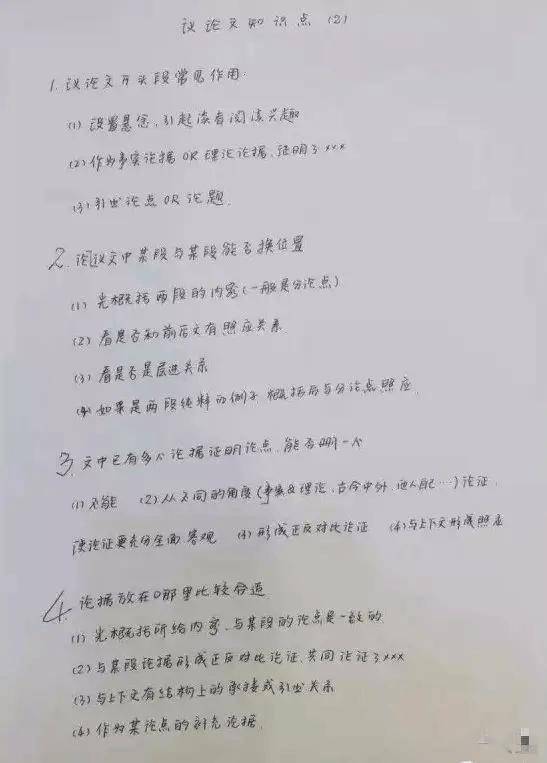 议论文知识点 (2)
1. 议论文开头段常见作用.
(1) 设置悬念, 引起读者阅读兴趣
(2) 作为事实论据 OR 理论论据, 证明了 xxx
(3) 引出论点 OR 论题.
2. 论议文中某段与某段能否换位置
(1) 先概括两段的内容(一般是分论点)
(2) 看是否和前后文有照应关系.
(3) 看是否是层进关系
(4) 如果是两段纯粹的例子 概括后与分论点照应.
3. 文中已有多个论据证明论点, 能否删一个
(1) 不能 (2) 从不同的角度(事实&理论, 古今中外 他人自己…) 论证,
使论证更充分全面客观 (3) 形成正反对比论证 (4) 与上下文形成照应
4. 论据放在哪里比较合适
(1) 先概括所给内容, 与某段的论点是一致的
(2) 与某段论据形成正反对比论证, 共同论证了xxx
(3) 与上下文有结构上的承接或引出关系
(4) 作为某论点的补充论据.